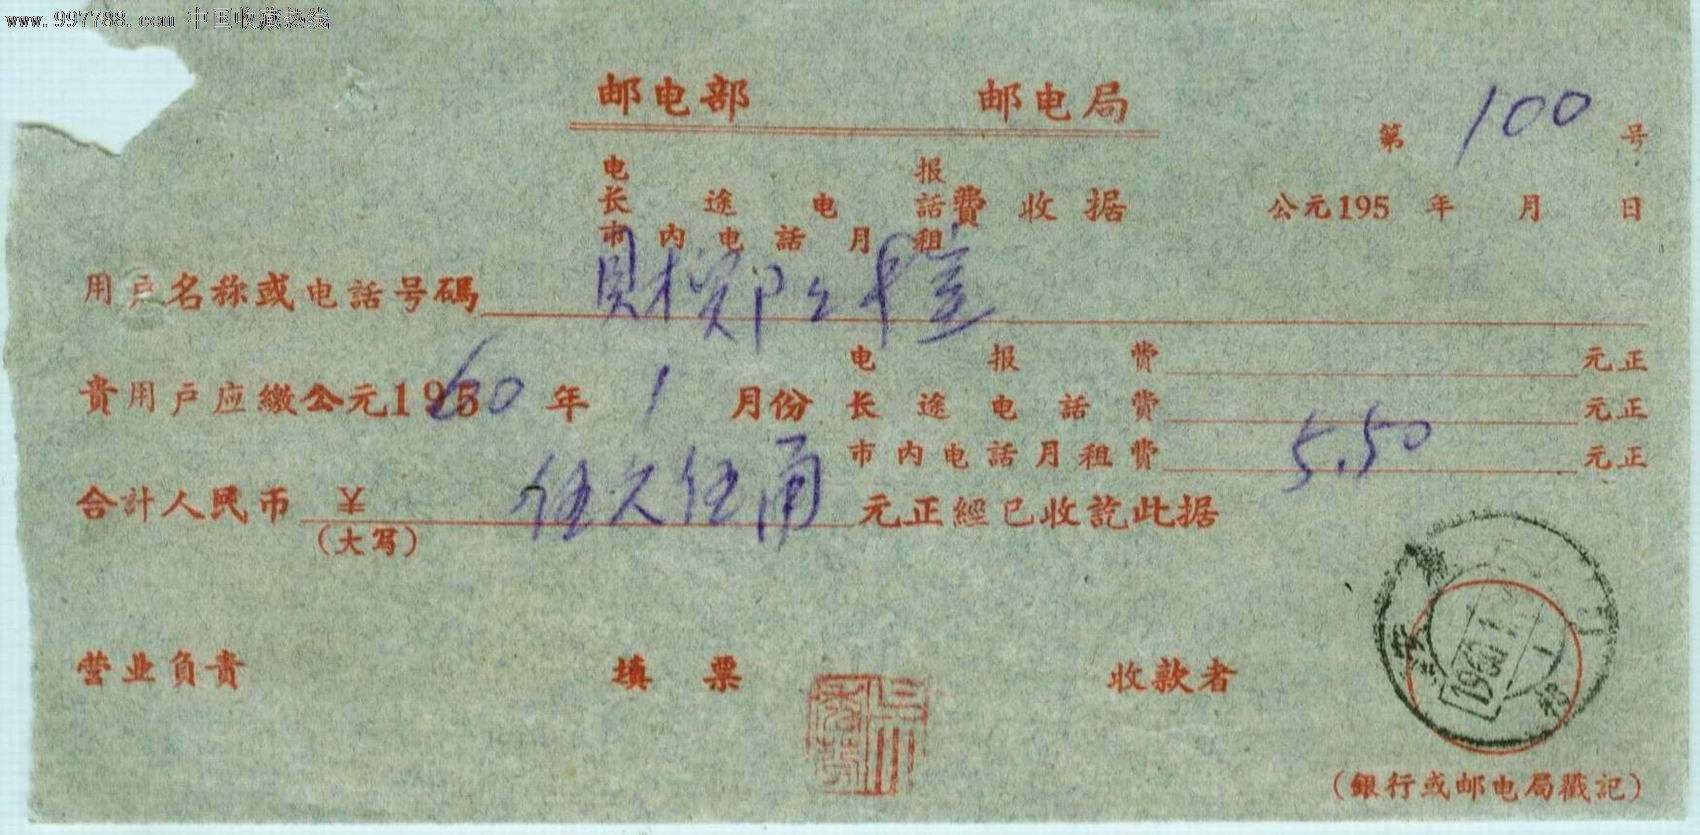 www.997788.com 中国收藏热线
邮电部 邮电局
第 100 号
电报
长途电話費 收据
市内电話月租
公元195 年 月 日
用户名称或电話号碼
貴用户应繳公元1960年 1 月份
电报費 元正
长途电話費 元正
市内电話月租費 5.50 元正
合計人民币 ¥ 伍元伍角 元正經已收訖此据
(大写)
营业负責 填票 收款者
1960.1.
(銀行或邮电局戳記)